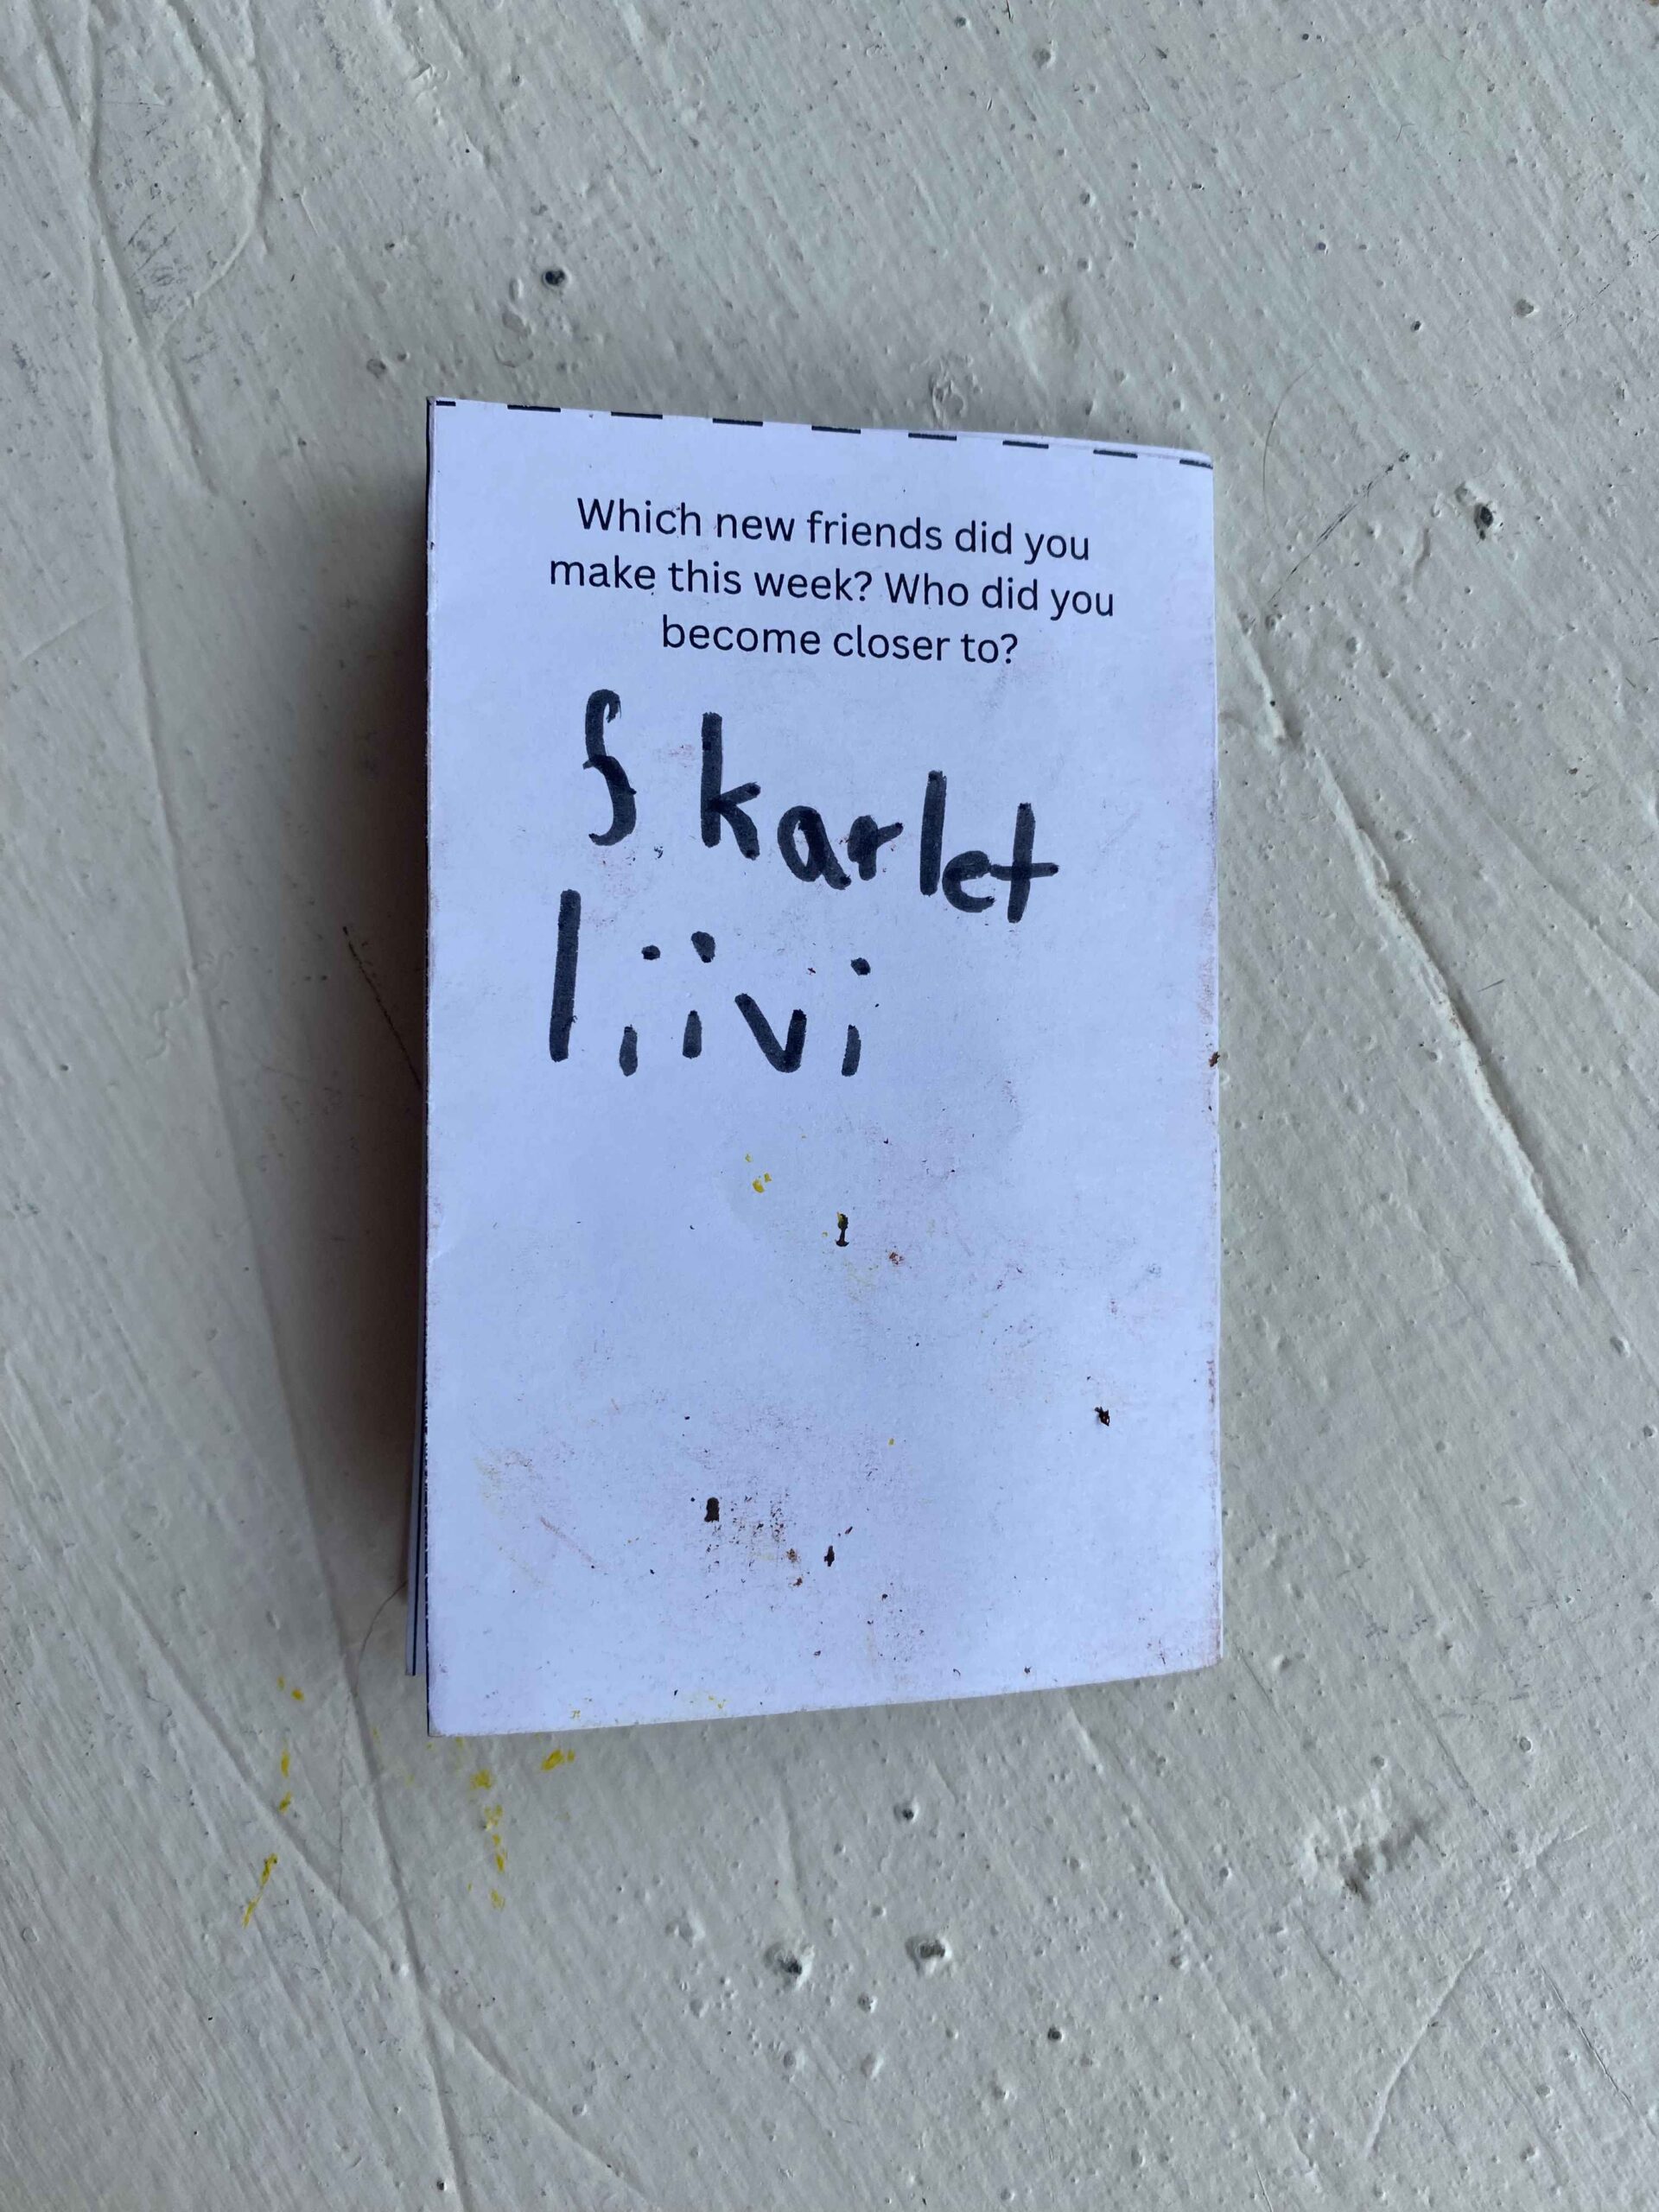 Which new friends did you
make this week? Who did you
become closer to?
Skarlet
liivi